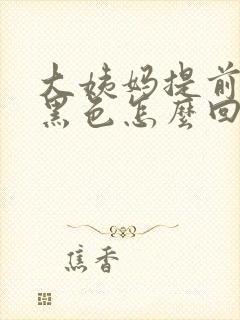 大姨妈提前
黑色怎麼回
焦香